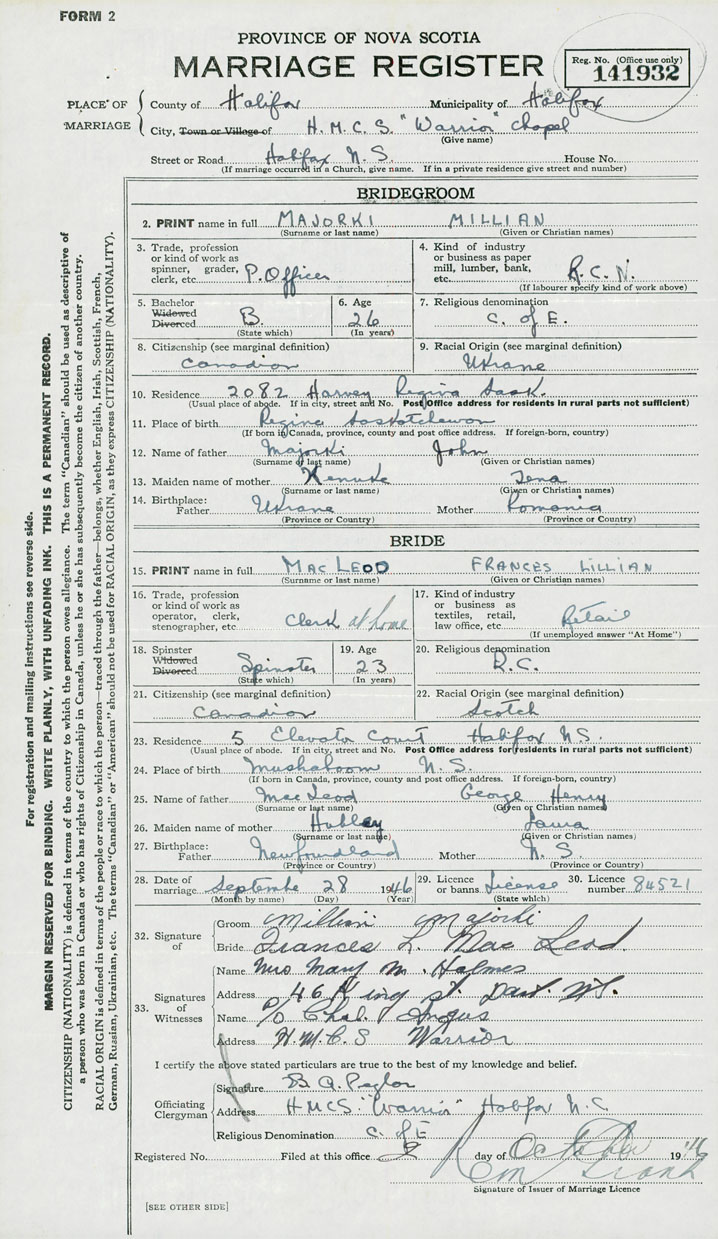 FORM 2
PROVINCE OF NOVA SCOTIA
MARRIAGE REGISTER
Reg. No. (Office use only)
141932
PLACE OF MARRIAGE
County of Halifax Municipality of Halifax
City, Town or Village of H.M.C.S. "Warrior" Chapel
(Give name)
Street or Road Halifax N.S. House No.
(If marriage occurred in a Church, give name. If in a private residence give street and number)
BRIDEGROOM
2. PRINT name in full MAJORKI MILLIAN
(Surname or last name) (Given or Christian names)
3. Trade, profession or kind of work as spinner, grader, clerk, etc. P. Officer
4. Kind of industry or business as paper mill, lumber, bank, etc. R.C.N.
(If labourer specify kind of work above)
5. Bachelor Widowed Divorced B. (State which)
6. Age 26 (In years)
7. Religious denomination C. of E.
8. Citizenship (see marginal definition) Canadian
9. Racial Origin (see marginal definition) Ukrane
10. Residence 2082 Harvey Regina Sask.
(Usual place of abode. If in city, street and No. Post Office address for residents in rural parts not sufficient)
11. Place of birth Regina Saskatchewan
(If born in Canada, province, county and post office address. If foreign-born, country)
12. Name of father Majorki John
(Surname or last name) (Given or Christian names)
13. Maiden name of mother
(Surname or last name) (Given or Christian names)
14. Birthplace: Father Ukrane Mother Romania
(Province or Country) (Province or Country)
BRIDE
15. PRINT name in full MAC LEOD FRANCES LILLIAN
(Surname or last name) (Given or Christian names)
16. Trade, profession or kind of work as operator, clerk, stenographer, etc. Clerk at home
17. Kind of industry or business as textiles, retail, law office, etc. Retail
(If unemployed answer "At Home")
18. Spinster Widowed Divorced Spinster (State which)
19. Age 23 (In years)
20. Religious denomination R.C.
21. Citizenship (see marginal definition) Canadian
22. Racial Origin (see marginal definition) Scotch
23. Residence 5 Elevator Court Halifax N.S.
(Usual place of abode. If in city, street and No. Post Office address for residents in rural parts not sufficient)
24. Place of birth Mushaboom N.S.
(If born in Canada, province, county and post office address. If foreign-born, country)
25. Name of father MacLeod George Henry
(Surname or last name) (Given or Christian names)
26. Maiden name of mother Hubley Laura
(Surname or last name) (Given or Christian names)
27. Birthplace: Father Newfoundland Mother N.S.
(Province or Country) (Province or Country)
28. Date of marriage Septembe 28 1946
(Month by name) (Day) (Year)
29. Licence or banns License (State which)
30. Licence number 84521
32. Signature of
Groom Millian Majorki
Bride Frances L. Mac Leod.
33. Signatures of Witnesses
Name Mrs Mary M. Holmes
Address 46 King St. Dart. N.S.
Name P/O Chas. Angus
Address H.M.C.S Warrior
I certify the above stated particulars are true to the best of my knowledge and belief.
Officiating Clergyman
Signature B. A.
Address HMCS. "Warrior" Halifax N.S.
Religious Denomination C. of E
Registered No. Filed at this office day of October 1946
Signature of Issuer of Marriage Licence
[SEE OTHER SIDE]
For registration and mailing instructions see reverse side.
MARGIN RESERVED FOR BINDING. WRITE PLAINLY, WITH UNFADING INK. THIS IS A PERMANENT RECORD.
CITIZENSHIP (NATIONALITY) is defined in terms of the country to which the person owes allegiance. The term "Canadian" should be used as descriptive of
a person who was born in Canada or who has rights of Citizenship in Canada, unless he or she has subsequently become the citizen of another country.
RACIAL ORIGIN is defined in terms of the people or race to which the person—traced through the father—belongs, whether English, Irish, Scottish, French,
German, Russian, Ukrainian, etc. The terms "Canadian" or "American" should not be used for RACIAL ORIGIN, as they express CITIZENSHIP (NATIONALITY).